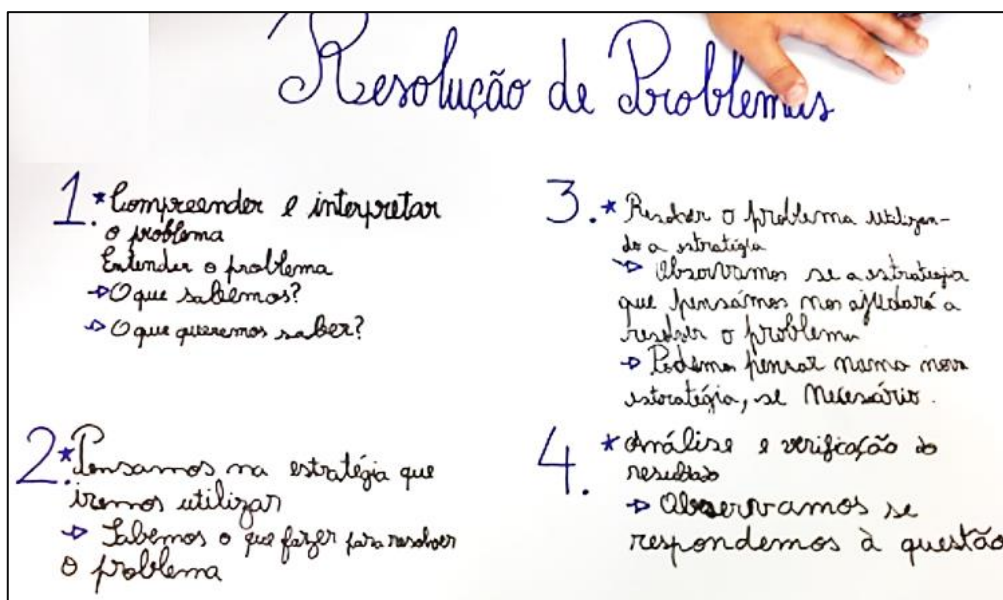 Resolução de Problemas
1.* Compreender e interpretar
o problema
Entender o problema
→ O que sabemos?
→ O que queremos saber?
2.* Pensamos na estratégia que
iremos utilizar
→ Sabemos o que fazer para resolver
o problema
3.* Resolver o problema utilizan-
do a estratégia
→ Observamos se a estratégia
que pensámos nos ajudará a
resolver o problema
→ Podemos pensar numa nova
estratégia, se necessário.
4.* Análise e verificação do
resultado
→ Observamos se
respondemos à questão